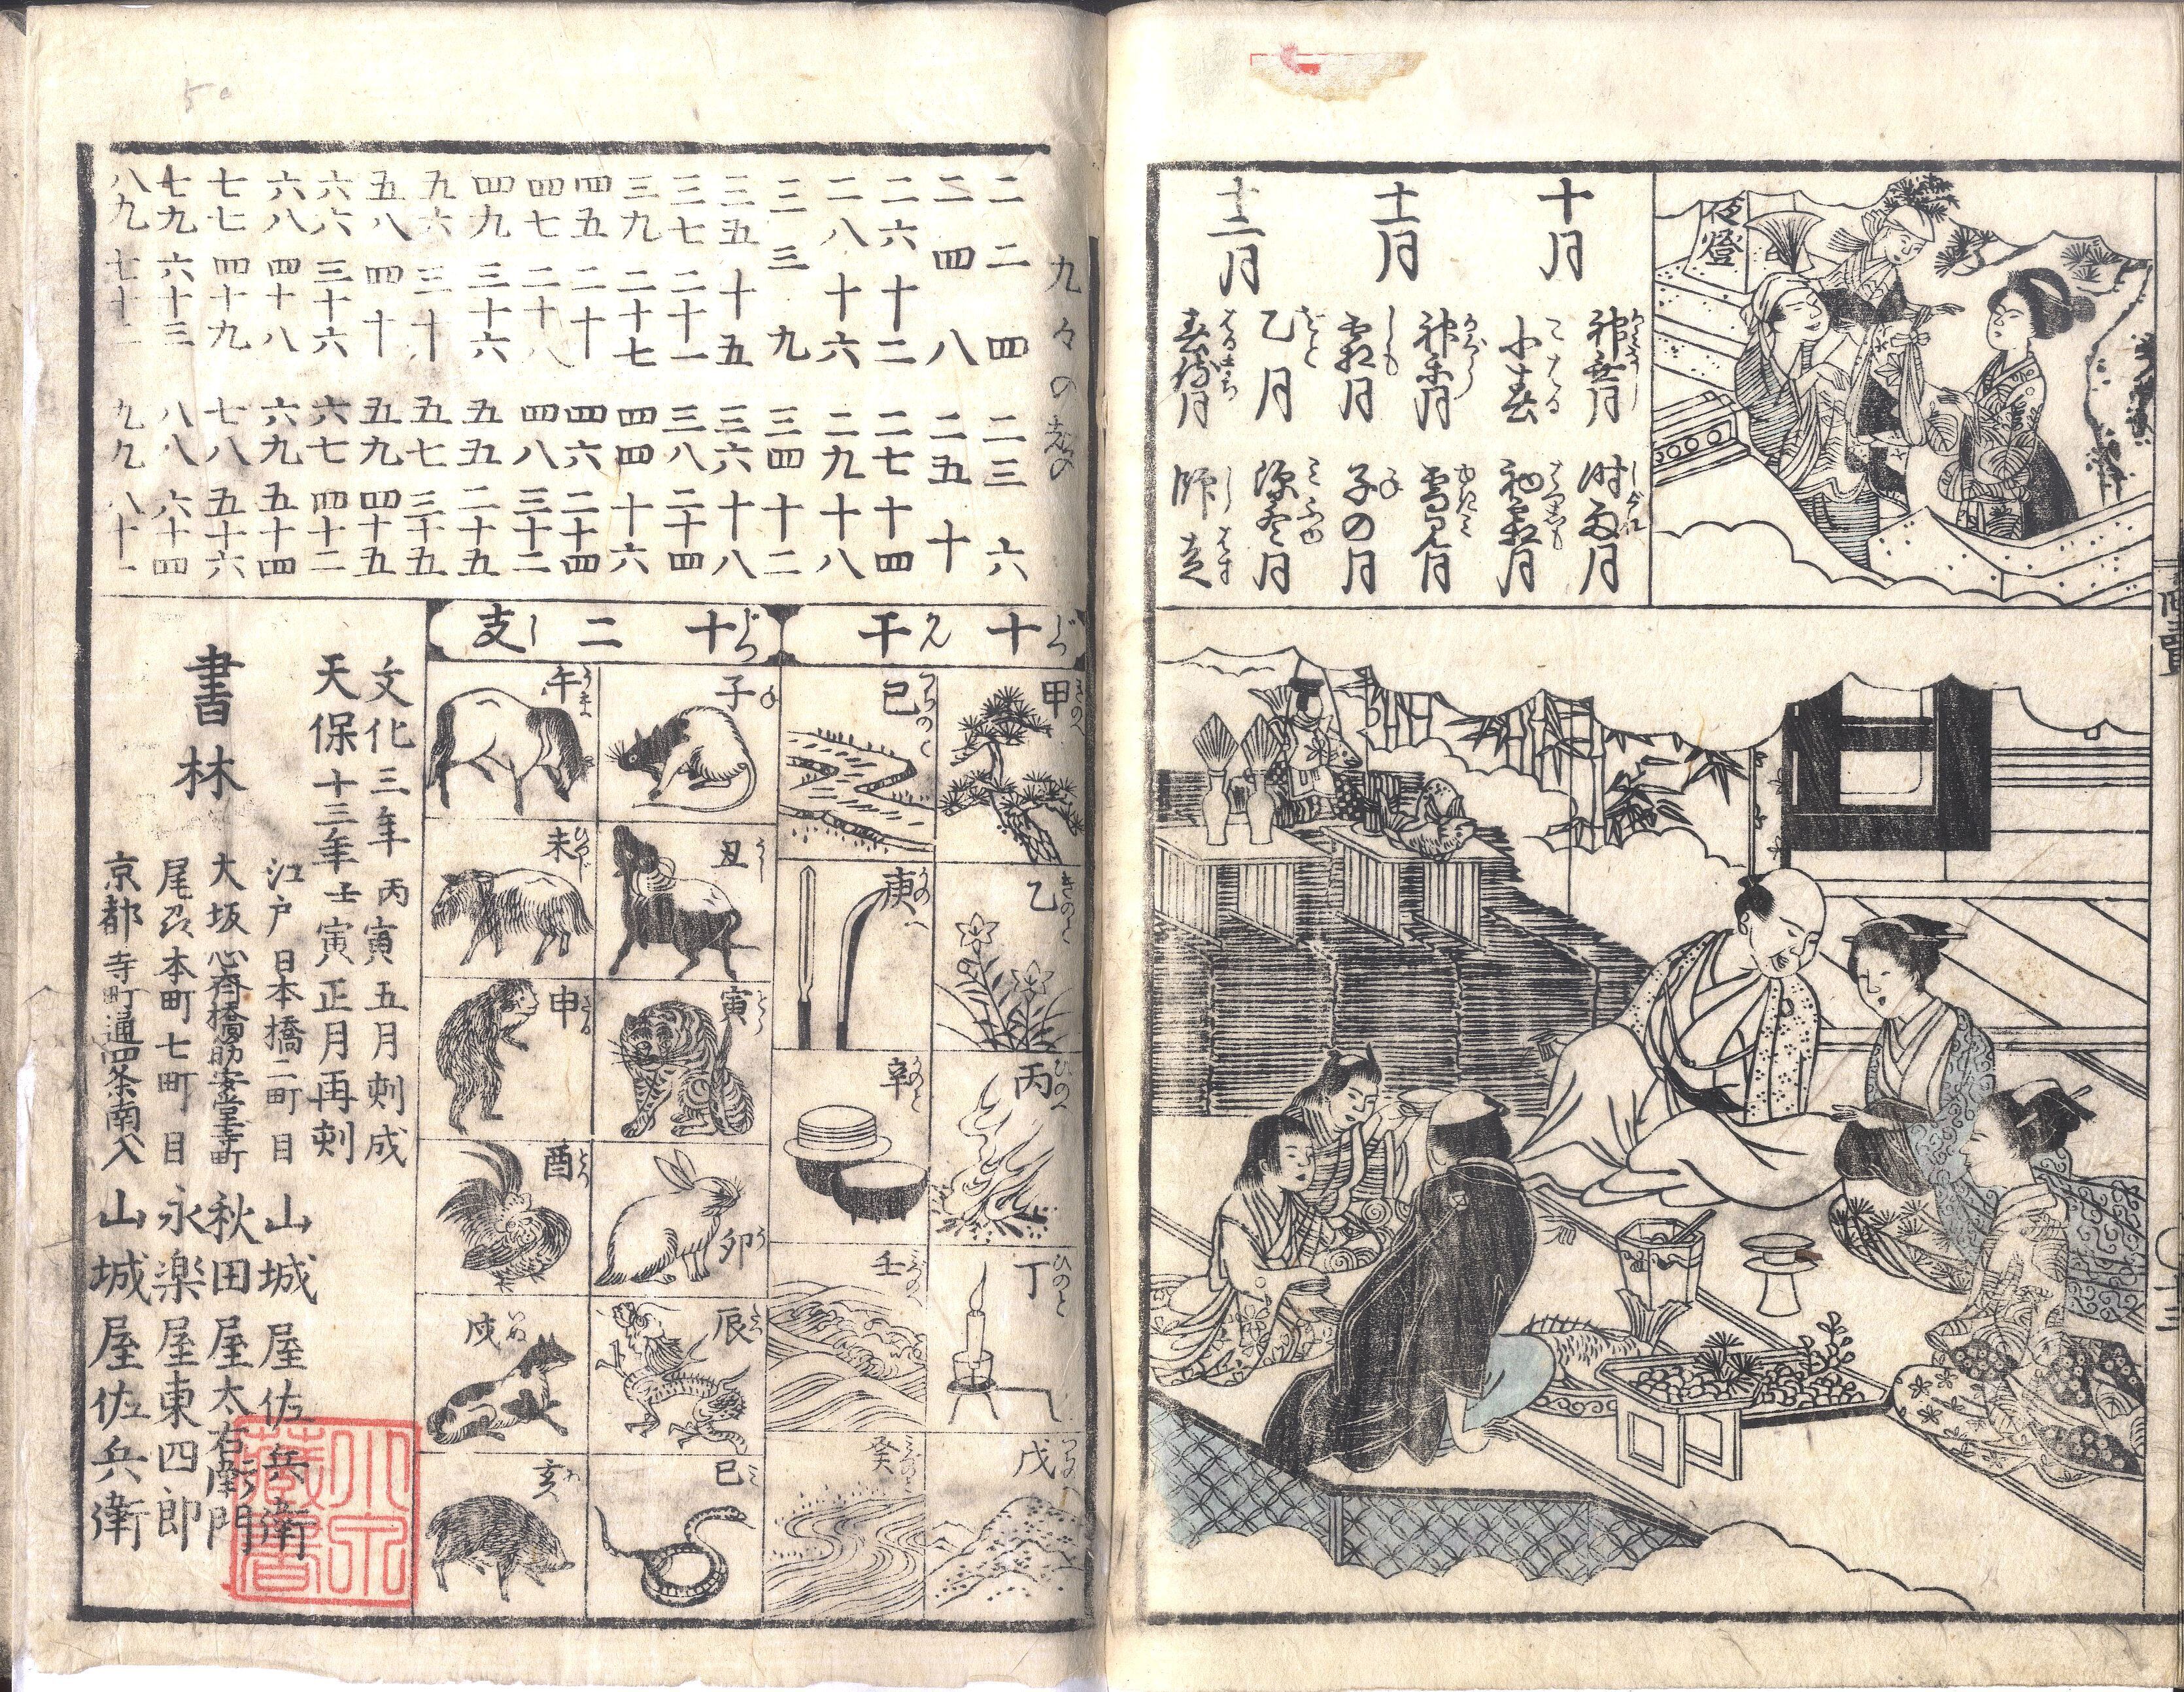 十月
神無月
時雨月
小春
初霜月
十一月
神楽月
雪見月
霜月
子の月
十二月
乙月
深冬月
春待月
師走
九々の
二二四
二三六
二四八
二五十
二六十二
二七十四
二八十六
二九十八
三三九
三四十二
三五十五
三六十八
三七二十一
三八二十四
三九二十七
四四十六
四五二十
四六二十四
四七二十八
四八三十二
四九三十六
五五二十五
五六三十
五七三十五
五八四十
五九四十五
六六三十六
六七四十二
六八四十八
六九五十四
七七四十九
七八五十六
七九六十三
八八六十四
八九七十二
九九八十一
十干
甲 きのへ
乙 きのと
丙 ひのへ
丁 ひのと
戊
己 つちのと
庚 かのへ
辛 かのと
壬 みづのへ
癸 みづのと
十二支
子 ね
丑 うし
寅 とら
卯 う
辰 たつ
巳 み
午 うま
未 ひつじ
申 さる
酉 とり
戌 いぬ
亥 ゐ
文化三年丙寅五月刻成
天保十三年壬寅正月再刻
書林
江戸日本橋二町目 山城屋佐兵衛
大坂心斎橋筋安堂寺町 秋田屋太右衛門
尾州本町七町目 永楽屋東四郎
京都寺町通四条南入 山城屋佐兵衛